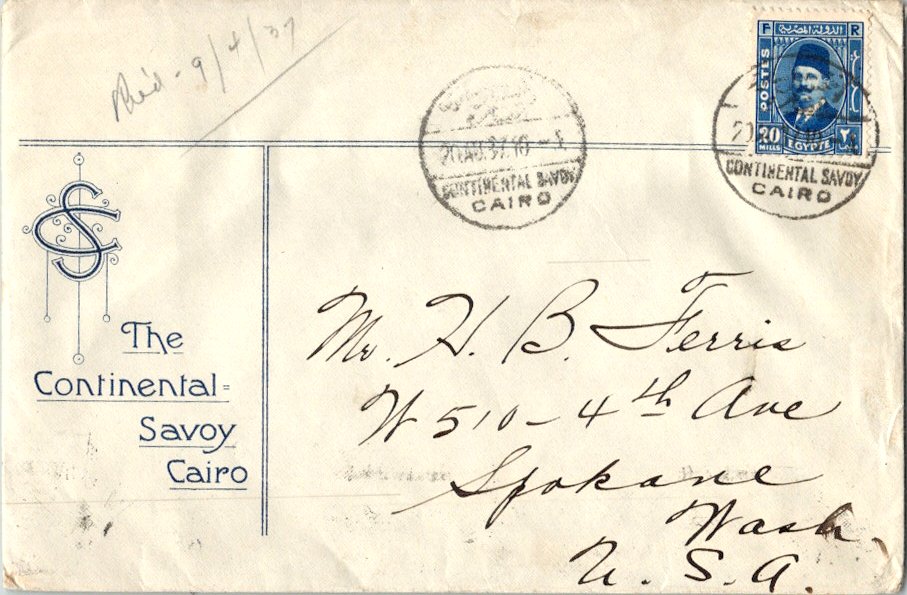 Rec'd - 9/4/37
F R
الدولة المصرية
POSTES
20
MILLS
EGYPTE
٢٠
20 AU.37.10 -
CONTINENTAL SAVOY
CAIRO
20
CONTINENTAL SAVOY
CAIRO
CS
The
Continental=
Savoy
Cairo
Mr. H. B. Ferris
W 510 - 4th Ave
Spokane
Wash.
U. S. A.